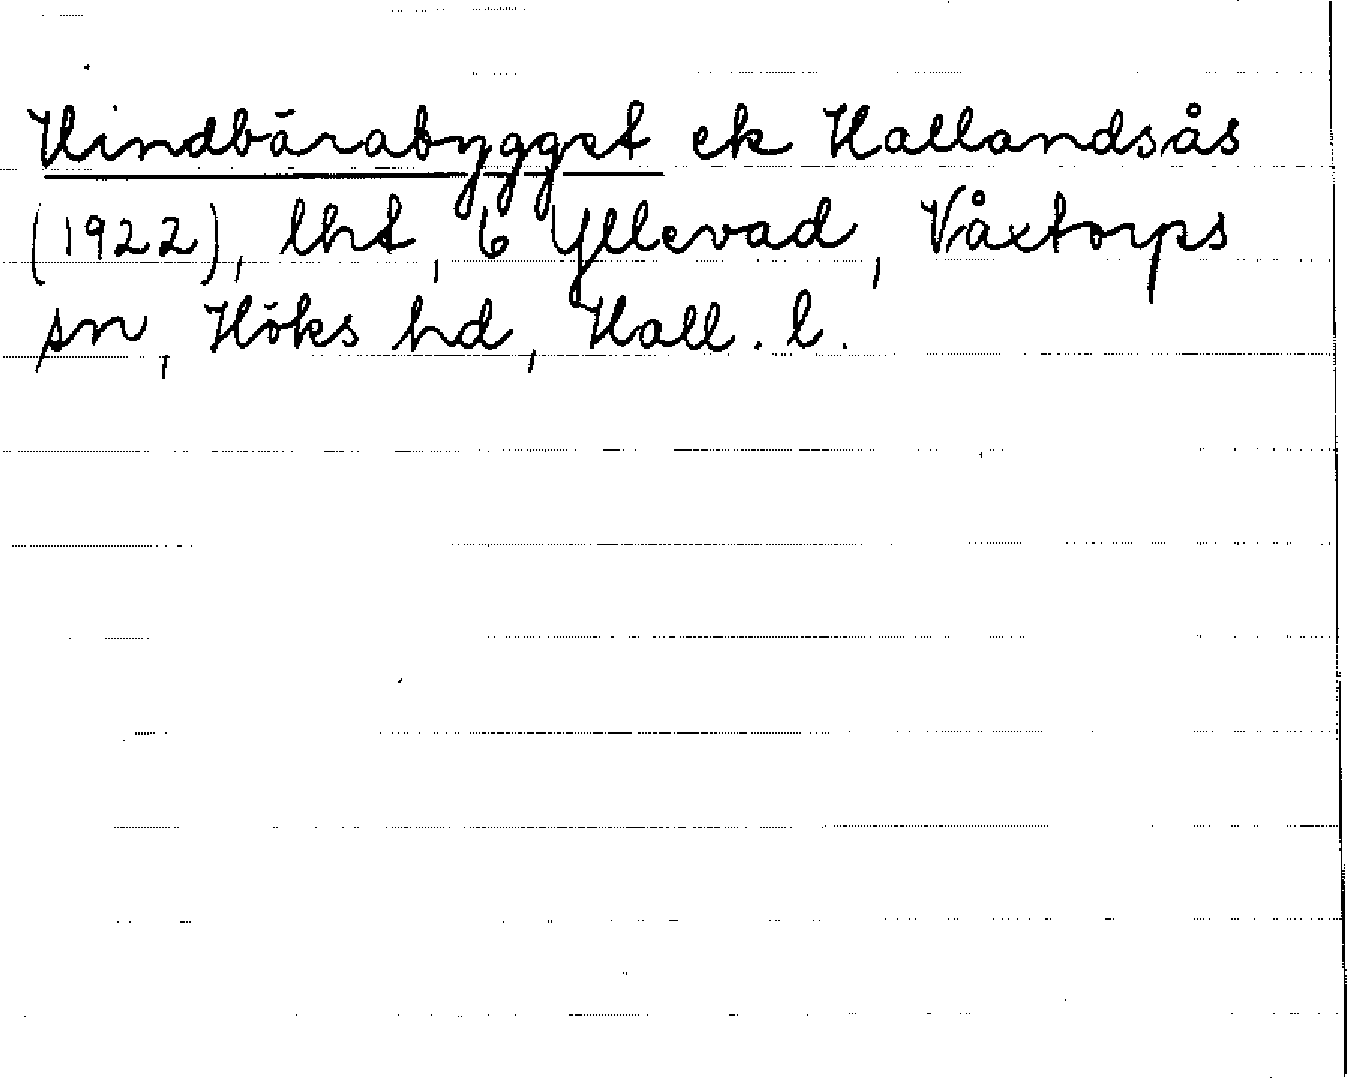 Hindbärabygget ek Hallandsås
(1922), lht, 6 Yllevad, Våxtorps
sn, Höks hd, Hall. l.